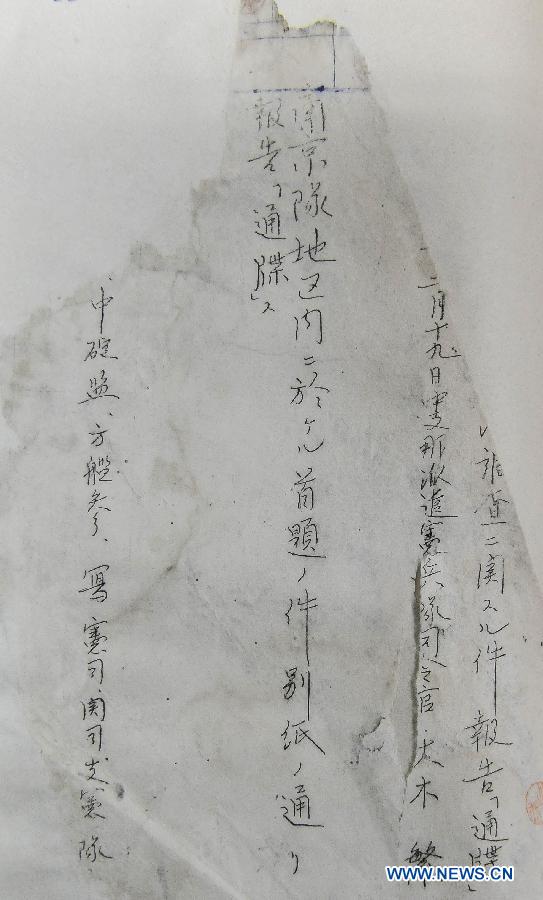 調査ニ関スル件 報告「通牒」
二月十九日 中支那派遣憲兵隊司令官 大木 繁
南京隊地区内ニ於ケル首題ノ件別紙ノ通リ
報告「通牒」ス
中碇監、方艦参、寫憲司関司支憲隊
WWW.NEWS.CN